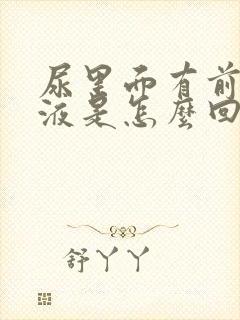 尿里面有前
液是怎麼回
舒丫丫